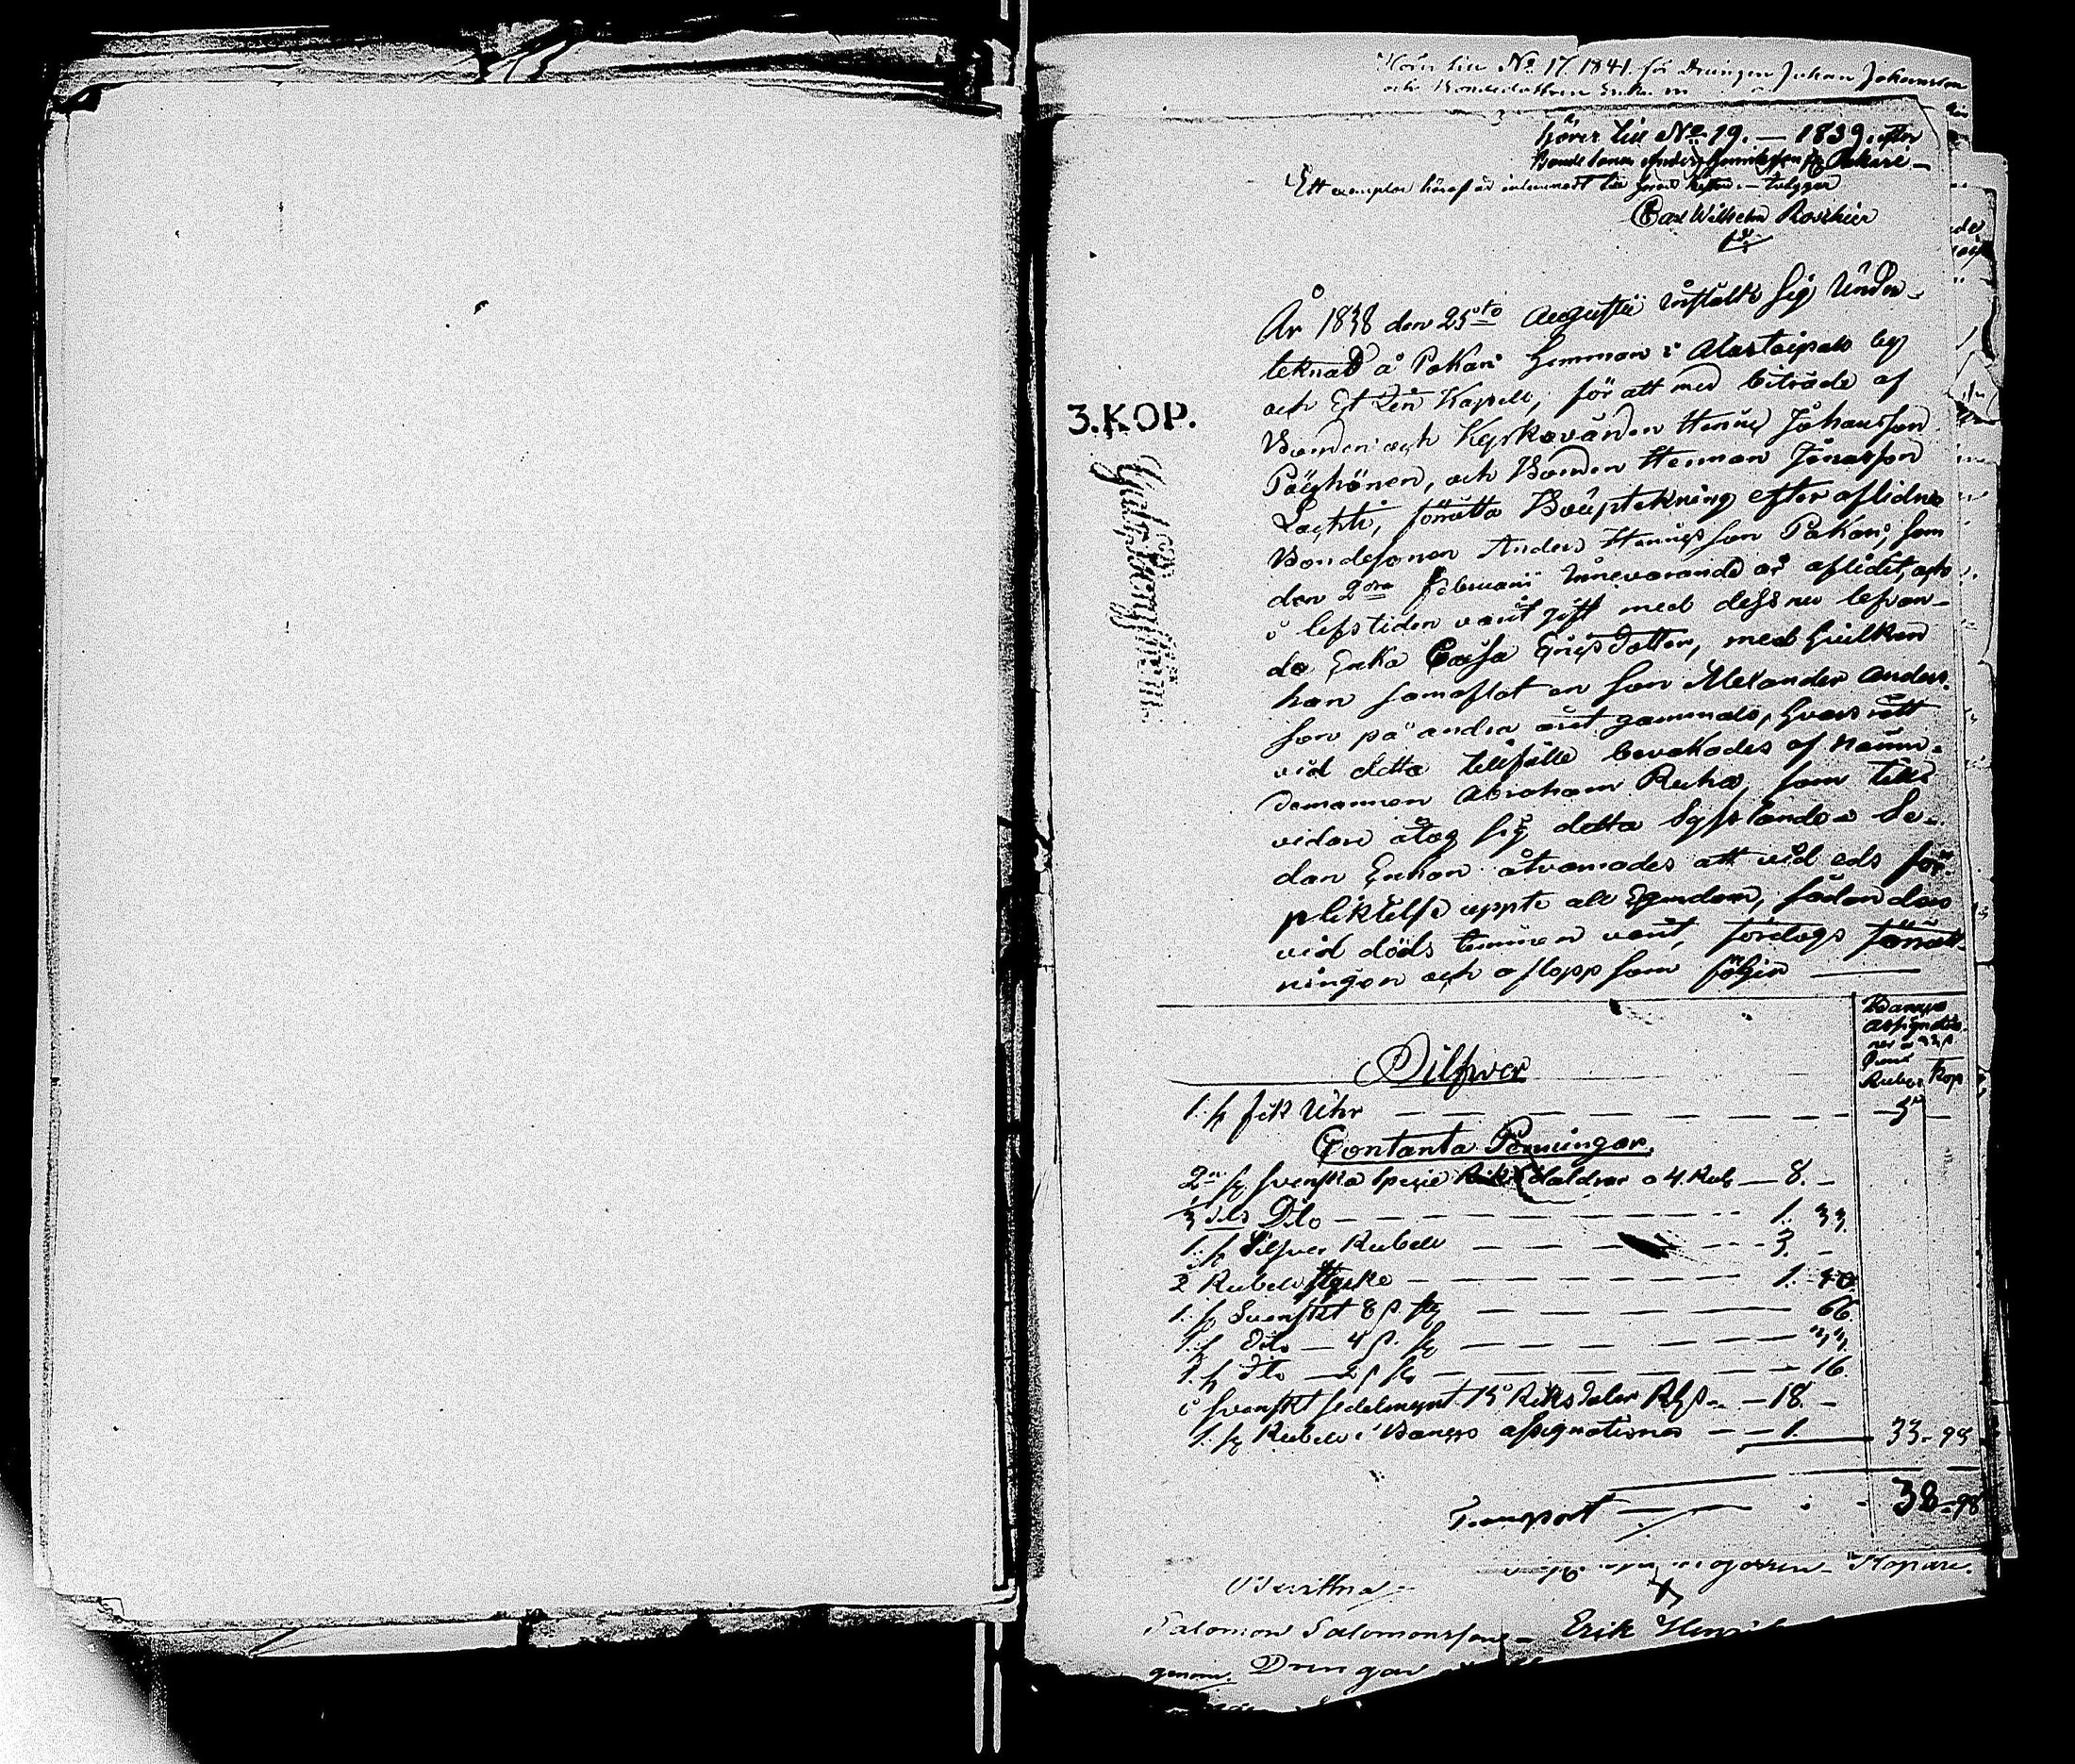 Hörer till No 17. 1841. för Drängen Johan Johansson
och Bondedottren
hörer till No 19. — 1839. efter
Bonde sonen Anders Henriksson Pakari —
Ett exemplar häraf är inlemnadt till — betygar
Carl Wilhelm Roschier
År 1838 den 25te Augustii instälte sig Under-
teknad å Pakari Hemman i Alastaipale by
och Kapell, för att med biträde af
Bonden och Kyrkovärden Henric Johansson
Pöyhönen, och Bonden Herman Jonasson
Lachti, förrätta Bouptekning efter aflidne
Bondesonen Anders Henricsson Pakari, som
den 2dra Februarii innevarande år aflidit, och
i lifstiden varit gift med dess nu lefvan-
da Enka Caisa Ericsdotter, med hvilken
han samaflat en son Alexander Anders-
son på andra året gammal, hvars rätt
vid detta tillfälle bevakades af Nämn-
demannen Abraham Reiha, som tills
vidare åtog sig detta Sysslande. Se-
dan Enkan åtvarnades att vid eds för-
pliktelse uppte all Egendom, sådan den
vid döds timmen varit, företogs förrätt-
ningen och aflopp som följer —
3.KOP.
Banco
assignatio-
ner
Rubel Kop
Silfver
1. st fick Uhr — 5 —
Contanta Penningar
2 st Svenska Specie Riksdaldrar a 4. Rub — 8. —
1/3 dels Dito — 1. 33.
1. st Silfver Rubel — 3. —
2 Rubels stycke — 1. 40.
1. st Svenskt 8 s. st — 66.
1. st Dito — 4 s. st — 33.
1. st Dito — 2 s. st — 16.
i Svenskt sedelmynt 15 Riksdaler Rgs — 18. —
1. st Rubel i Banco assignationer — 1. 33. 98
Transport — 38. 98
Bevittna
Salomon Salomonsson — Erik
genom. Drengar